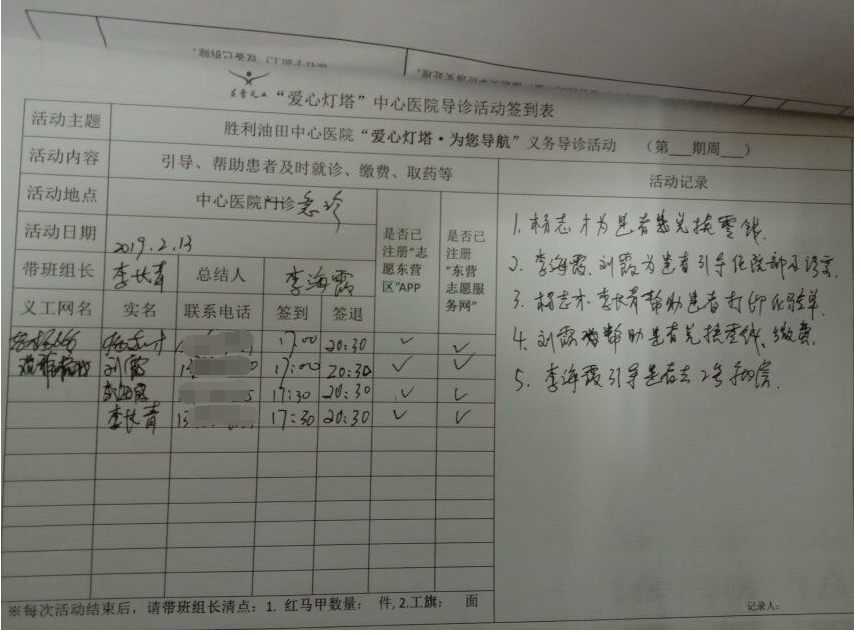 东营义工 “爱心灯塔”中心医院导诊活动签到表
活动主题 胜利油田中心医院“爱心灯塔·为您导航”义务导诊活动 （第___期周___）
活动内容 引导、帮助患者及时就诊、缴费、取药等
活动地点 中心医院门诊急诊
活动日期 2019.2.13
带班组长 李长青 总结人 李海霞
是否已注册“志愿东营区”APP
是否已注册“东营志愿服务网”
义工网名 实名 联系电话 签到 签退
杨志才 17:00 20:30 ✓ ✓
刘霞 13 0 17:00 20:30 ✓ ✓
李海霞 13 5 17:30 20:30 ✓ ✓
李长青 13 17:30 20:30 ✓ ✓
※每次活动结束后，请带班组长清点：1. 红马甲数量： 件, 2.工旗： 面
活动记录
1. 杨志才为患者兑换零钱.
2. 李海霞、刘霞为患者引导住院部及
3. 杨志才、李长青帮助患者打印化验单.
4. 刘霞帮助患者兑换零钱、缴费.
5. 李海霞引导患者去2号
记录人：